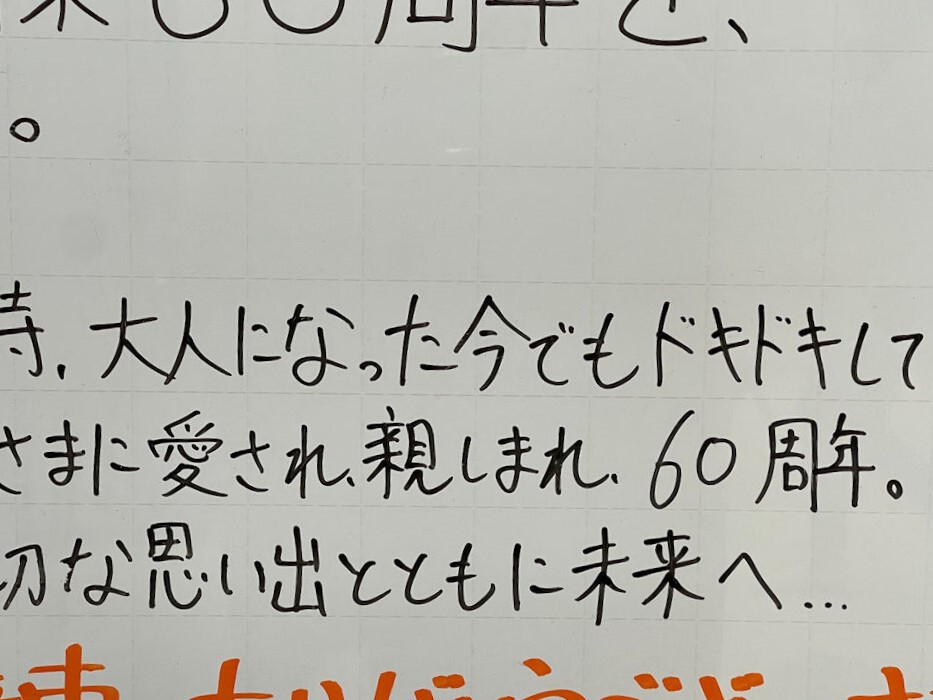 60周年を、
。
時、大人になった今でもドキドキして
さまに愛され、親しまれ、60周年。
切な思い出とともに未来へ...